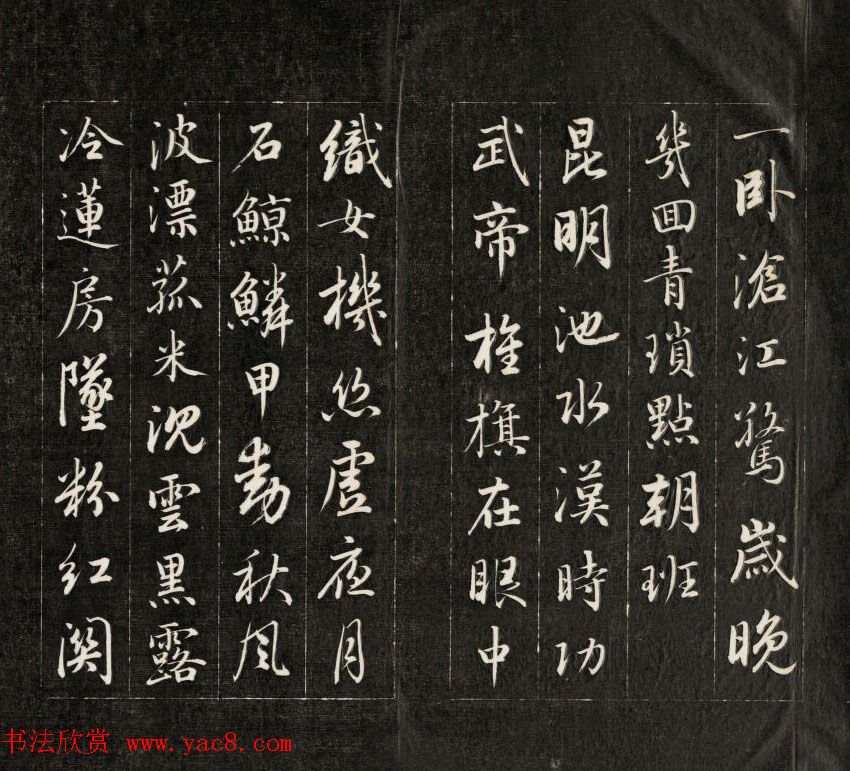 一卧滄江驚歲晚
幾回青瑣點朝班
昆明池水漢時功
武帝旌旗在眼中
織女機絲虛夜月
石鯨鱗甲動秋風
波漂菰米沉雲黑露
冷蓮房墜粉紅關
书法欣赏 www.yac8.com